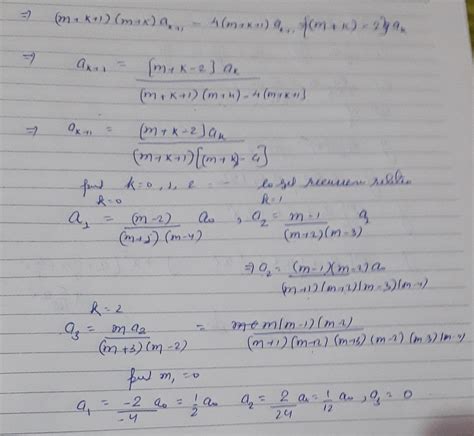 ⇒ (m+k+1)(m+k) a_{k+1} - 4(m+k+1) a_{k+1} (m+k) - 2 a_k
⇒ a_{k+1} = [m+k-2] a_k / (m+k+1)(m+k) - 4(m+k+1)
⇒ a_{k+1} = (m+k-2) a_k / (m+k+1)[(m+k) - 4]
put k=0, 1, 2 --- to get relation
k=0 k=1
a_1 = (m-2) a_0 / (m+1)(m-4) , a_2 = m-1 / (m+2)(m-3) a_1
⇒ a_2 = (m-1)(m-2) a_0 / (m+1)(m+2)(m-3)(m-4)
k = 2
a_3 = m a_2 / (m+3)(m-2) = m(m-1)(m-2) / (m+1)(m+2)(m+3)(m-2)(m-3)(m-4)
put m_1 = 0
a_1 = -2/-4 a_0 = 1/2 a_0 a_2 = 2/24 a_0 = 1/12 a_0 , a_3 = 0